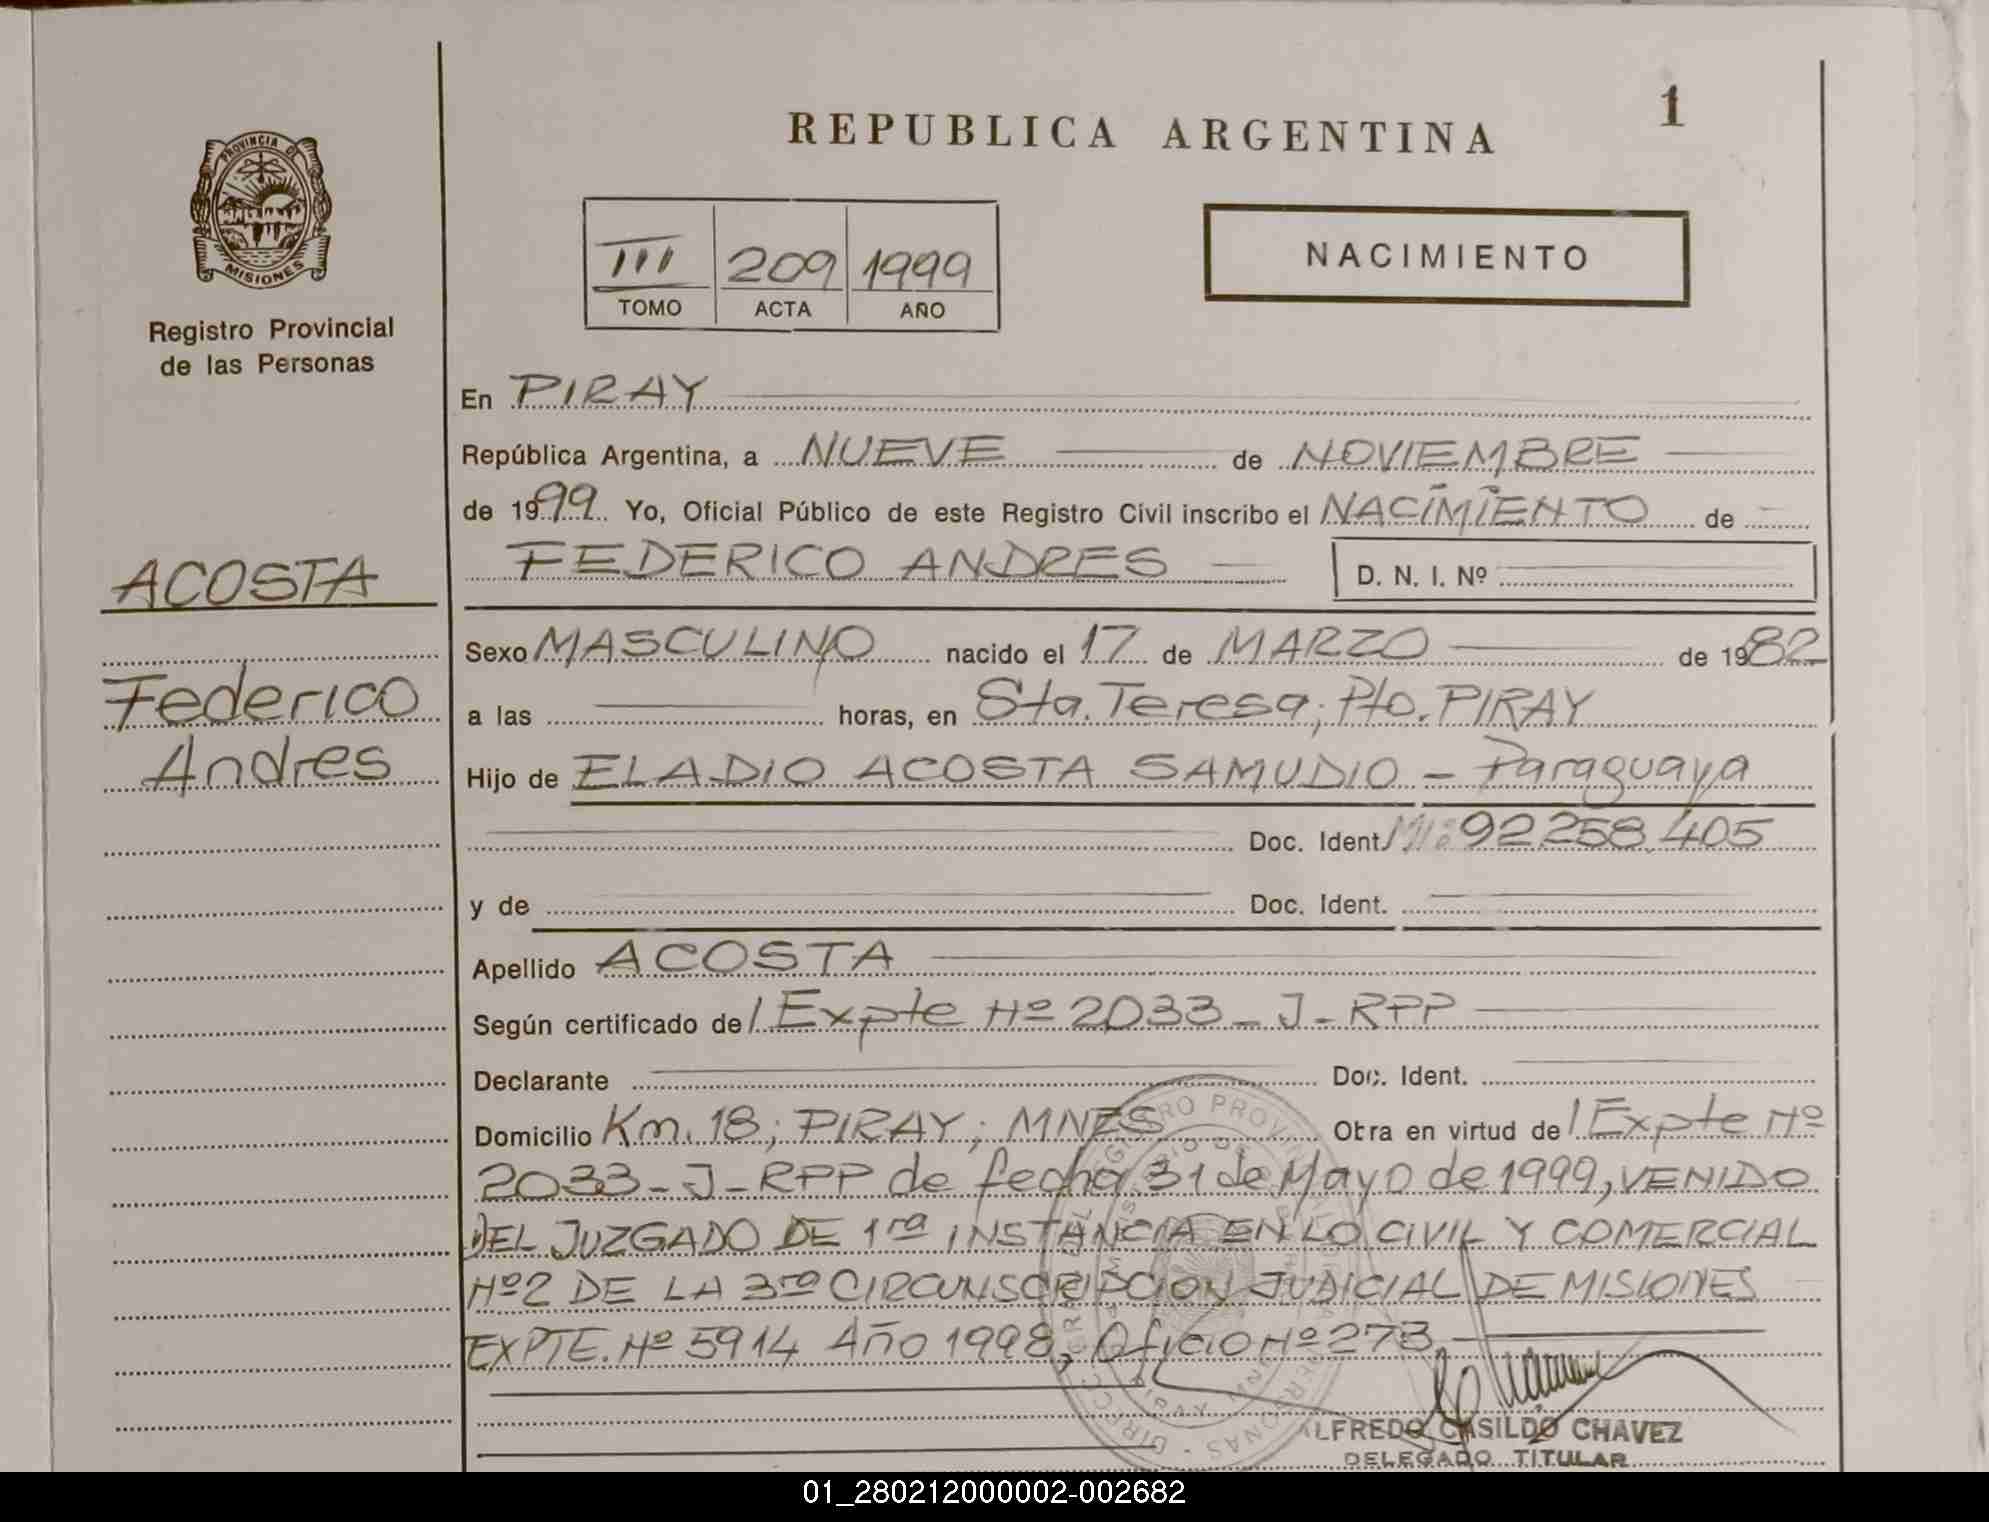 REPUBLICA ARGENTINA
1
PROVINCIA DE
MISIONES
Registro Provincial
de las Personas
III 209 1999
TOMO ACTA AÑO
NACIMIENTO
En PIRAY
República Argentina, a NUEVE de NOVIEMBRE
de 1999. Yo, Oficial Público de este Registro Civil inscribo el NACIMIENTO de
FEDERICO ANDRES D. N. I. Nº
ACOSTA
Federico
Andres
Sexo MASCULINO nacido el 17 de MARZO de 1982
a las horas, en Sta. Teresa; Pto. PIRAY
Hijo de ELADIO ACOSTA SAMUDIO - Paraguaya
Doc. Ident. 92.258.405
y de Doc. Ident.
Apellido ACOSTA
Según certificado de / Expte Nº 2033 - J - RPP
Declarante Doc. Ident.
Domicilio Km. 18; PIRAY; MNES Otra en virtud de / Expte Nº
2033 - J - RPP de fecha 31 de Mayo de 1999, VENIDO
DEL JUZGADO DE 1ra INSTANCIA EN LO CIVIL Y COMERCIAL
Nº2 DE LA 3ra CIRCUNSCRIPCION JUDICIAL DE MISIONES
EXPTE. Nº 5914 Año 1998, Oficio Nº 273
ALFREDO CASILDO CHAVEZ
DELEGADO TITULAR
01_280212000002-002682